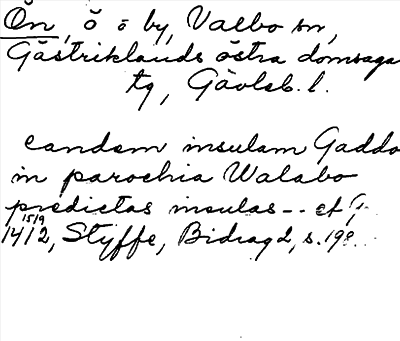 Ön, ö ö by, Valbo sn,
Gästriklands östra domsaga
tg, Gävleb. l.
eandem insulam Gaddo
in parochia Walabo
predictas insulas -- et
15/9
1412, Styffe, Bidrag 2, s. 198